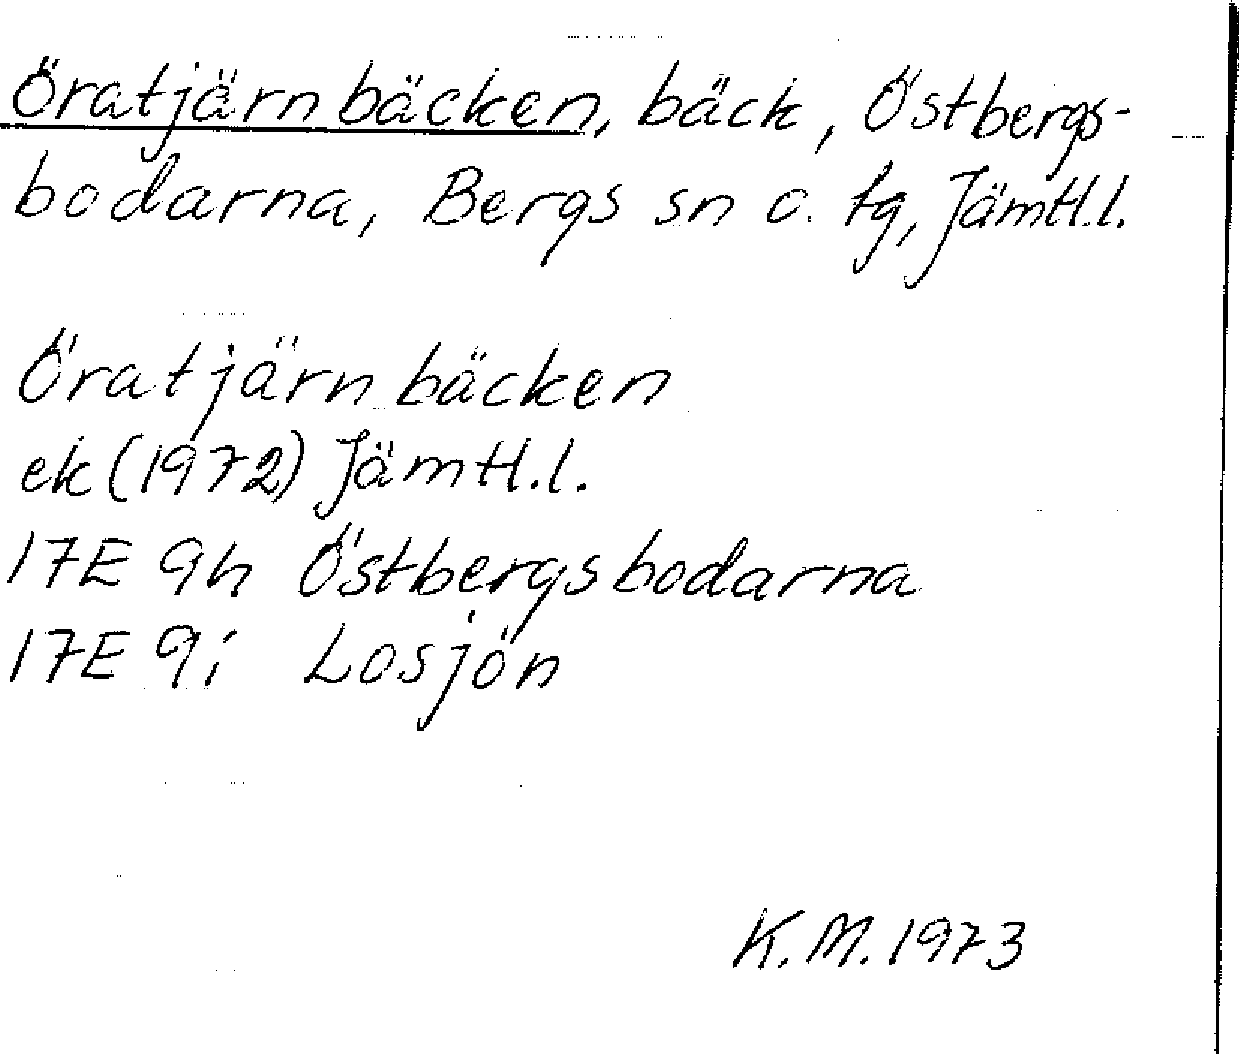 Öratjärnbäcken, bäck, Östbergs-
bodarna, Bergs sn o. tg, Jämtl.l.
Öratjärnbäcken
ek (1972) Jämtl.l.
17E 9h Östbergsbodarna
17E 9i Losjön
K.M. 1973